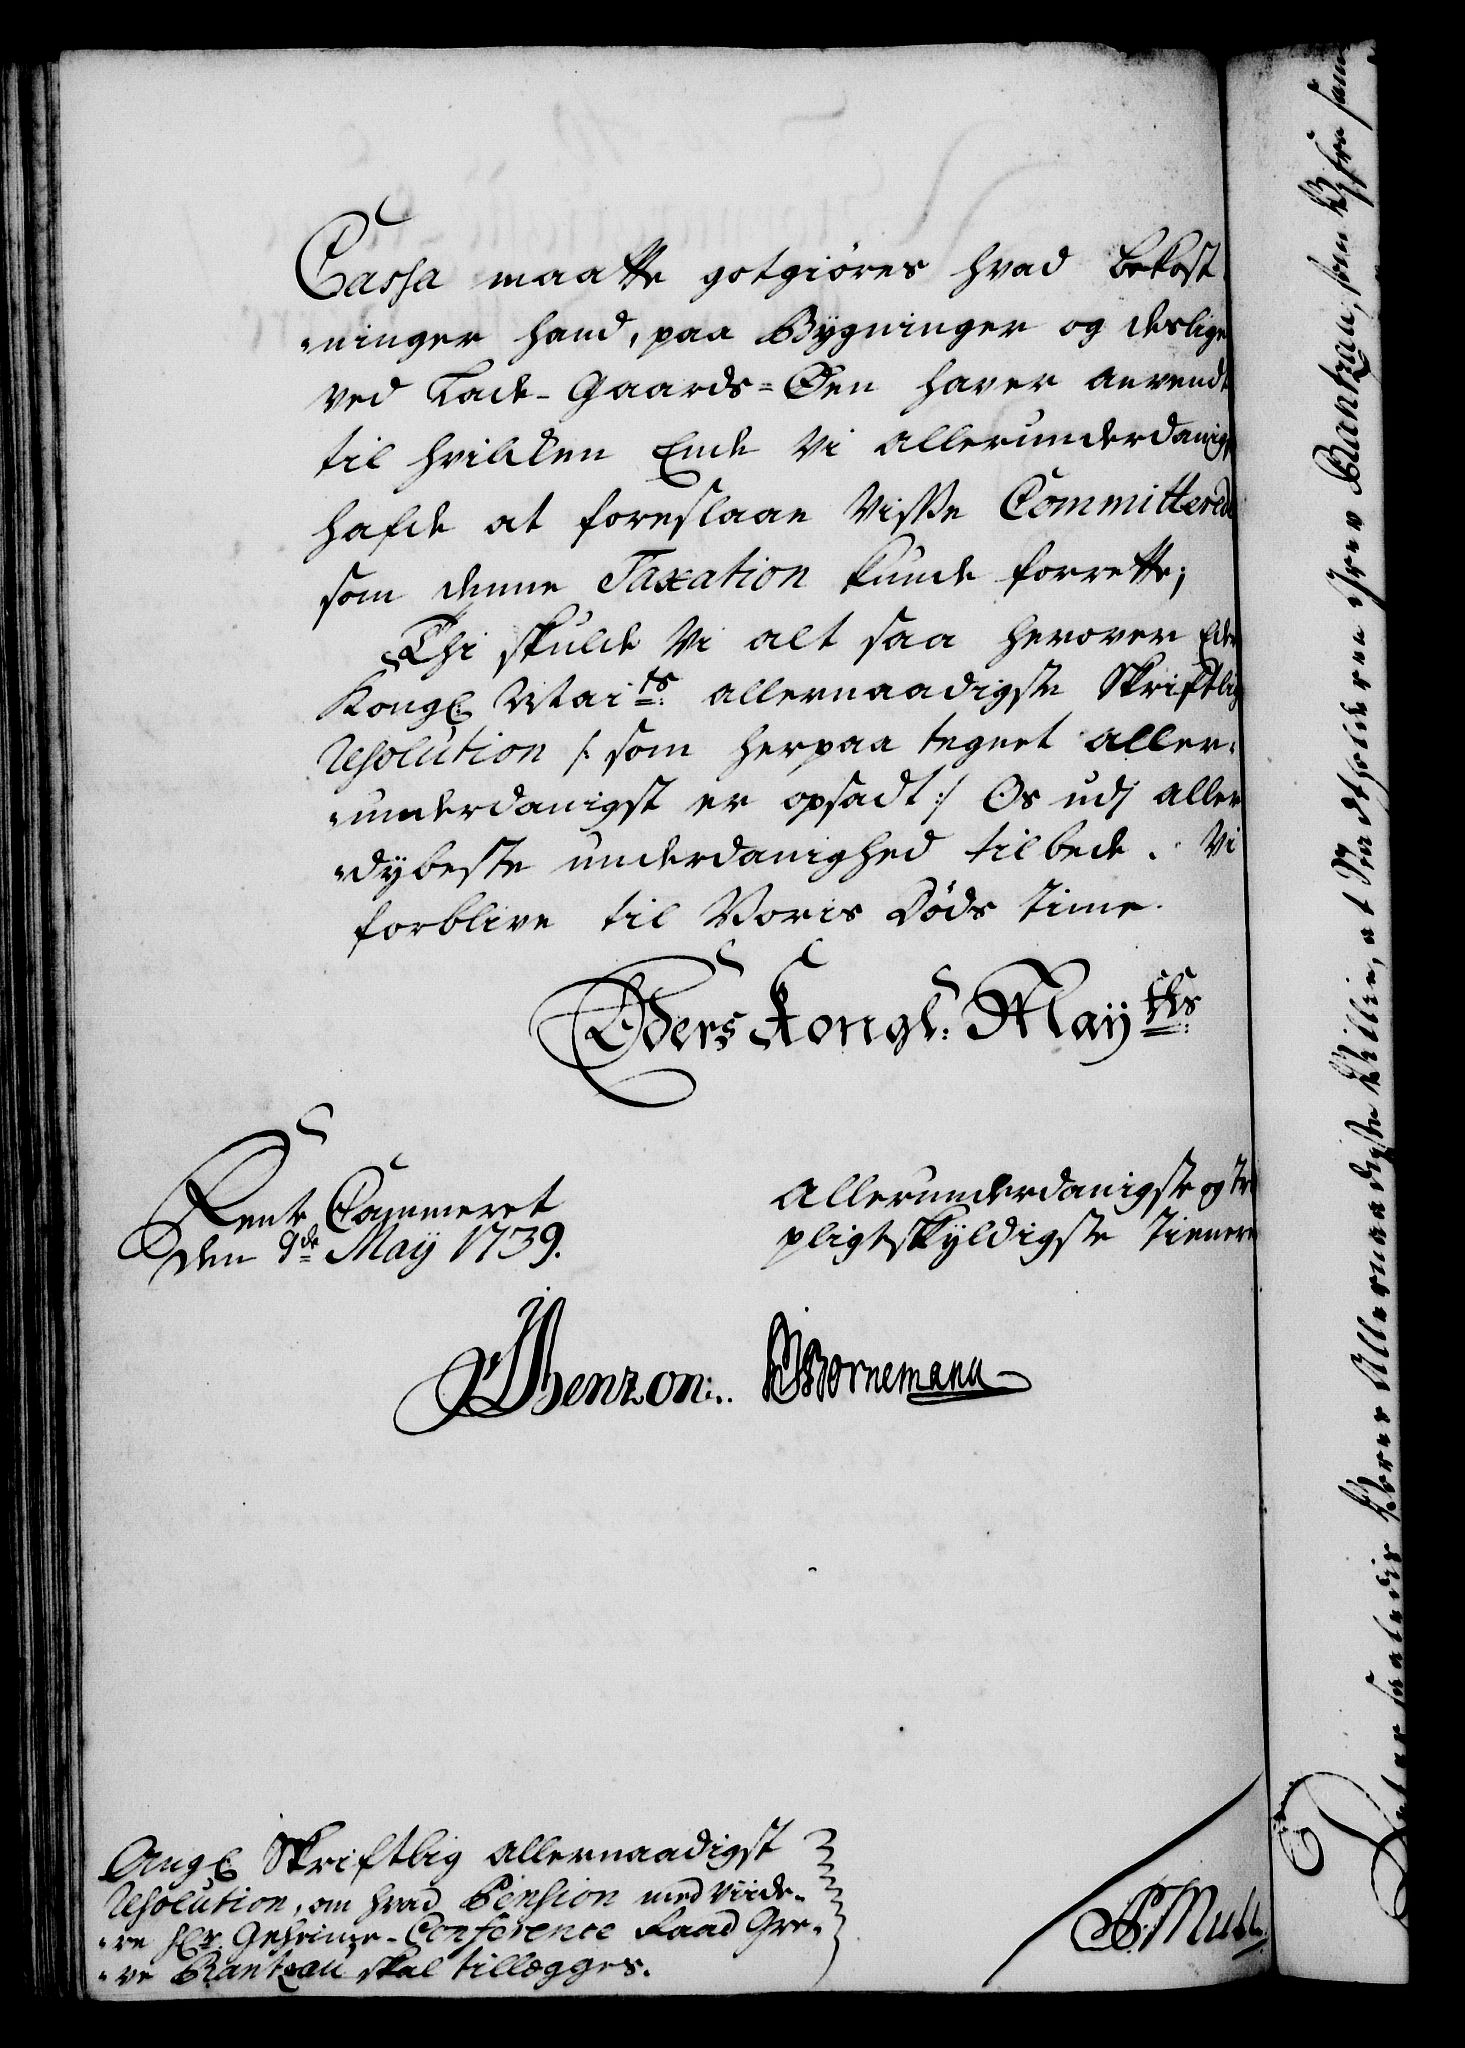 Cassa maatte gotgiöres hvad bekost-
-ninger hand, paa Bÿgninger og deslige
ved Lade-Gaards-Öen haver anvendt
til hvilken Ende Vi allerunderdanigst
hafde at foreslaae Visse Committerede
som denne Taxation kunde forrette;
Thi skulde Vi alt saa herover Eders
Kongl. Mai.ts allernaadigste Skriftlig
Resolution /: som herpaa tegnet aller-
-underdanigst er opsadt :/ Os udj aller
-dybeste underdanighed tilbede. Vi
forblive til Voris Döds Time.
Eders Kongl. Maÿ.tts
Rente Cammeret
den 9de Maÿ 1739.
Allerunderdanigste og
pligtskÿldigste Tienere
Benzon:. Bornemann
Ang. Skriftlig Allernaadigst
Resolution, om hvad Pension med viide-
-re Hr. Geheime-Conference Raad Gre-
-ve Rantzau skal tillægges.
Eders Allernaadigste Villie, at Stadtholderen Grev Rantzau, som